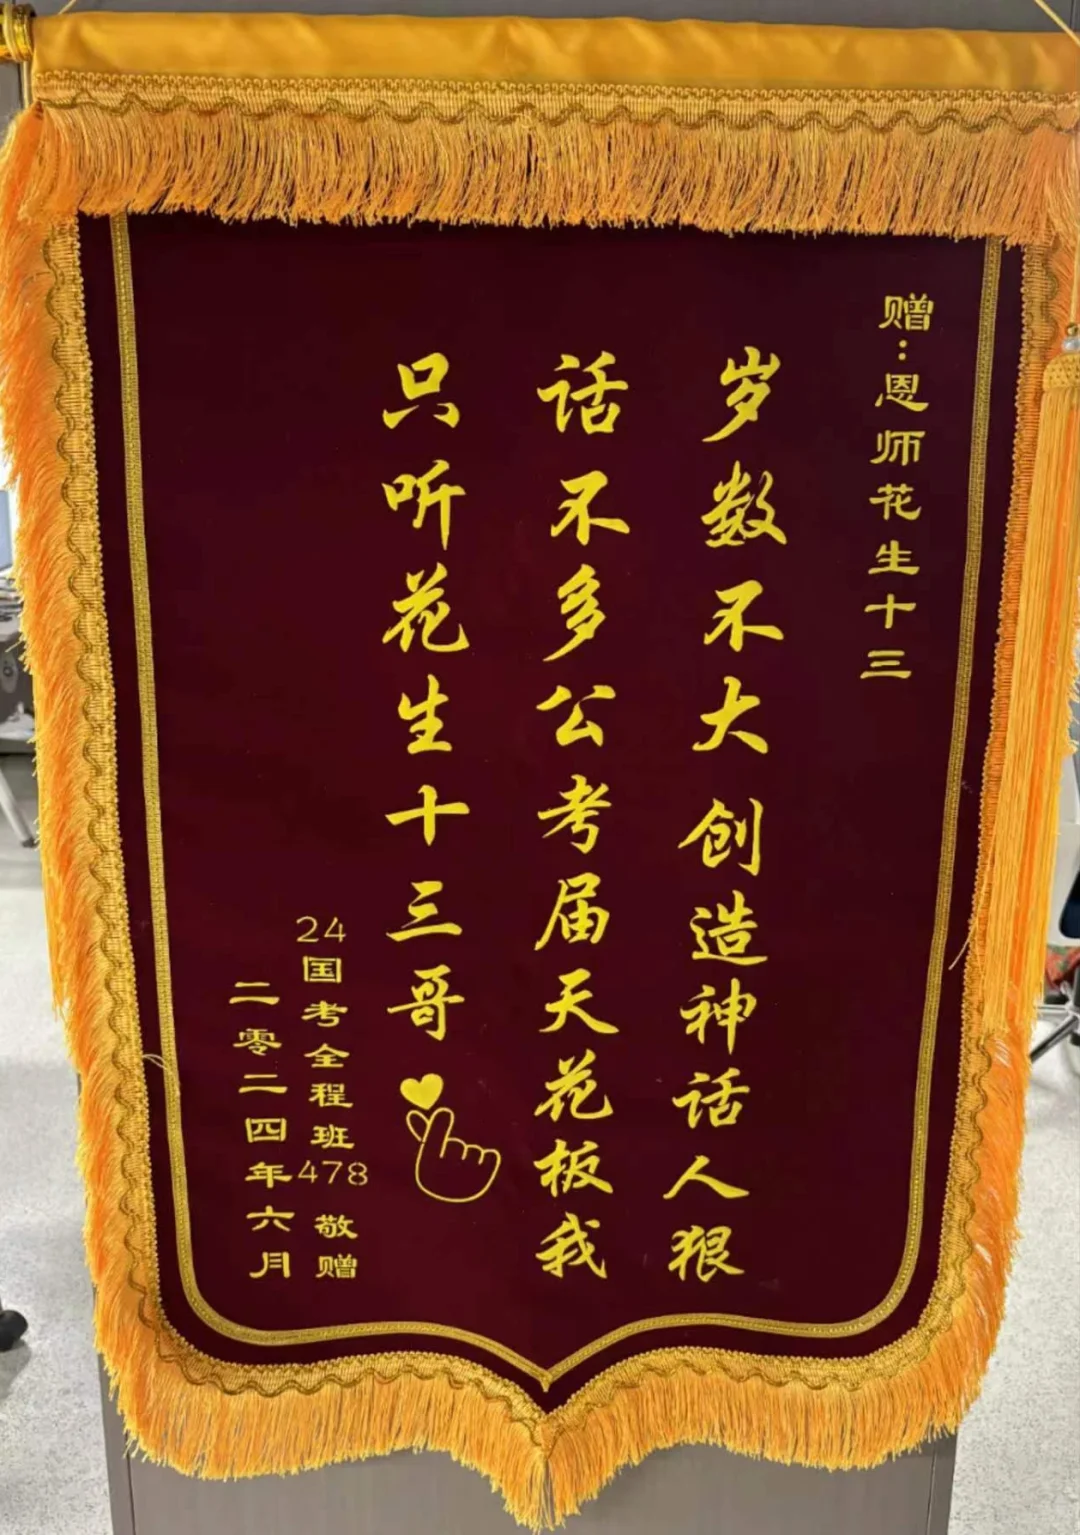 赠：恩师花生十三
岁数不大创造神话人狠
话不多公考届天花板我
只听花生十三哥
24国考全程班478 敬赠
二零二四年六月